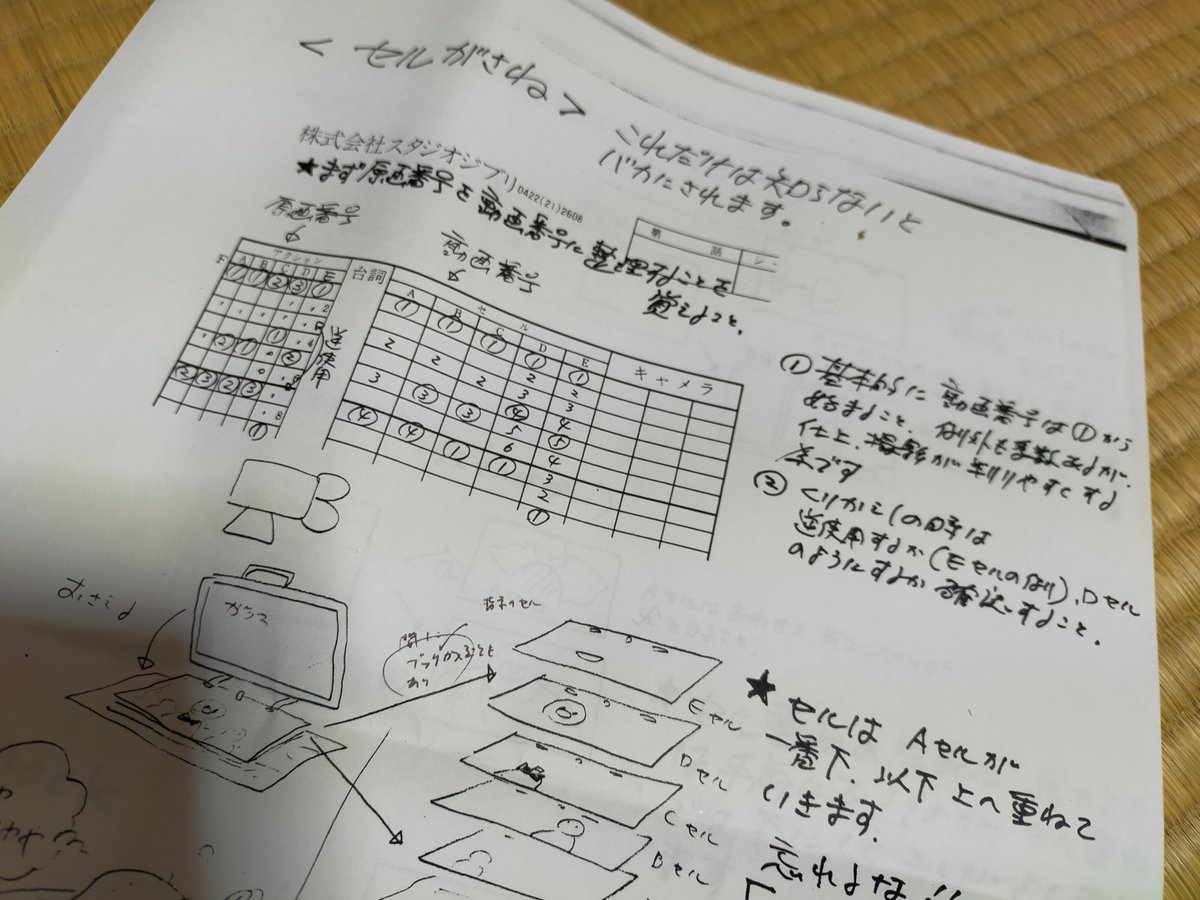 <セルがさね>
これだけは知らないと
バカにされます。
株式会社スタジオジブリ 0422(21)2608
★まず原画番号を動画番号に整理することを
覚えること、
第 話 シ
原画番号
動画番号
アクション
F A B C D E
台詞
セル
A B C D E
キャメラ
① ① ② ③ ①
逆使用
① ① ① ① ①
2 2 2 2 2
3 ③ ③ 3 3
④ ④ ① ④ 4
5 ⑤
6 4
① 3
2
①
① 基本的に動画番号は①から
始まること、例外も多数あるが、
仕上、撮影が判りやすくする
為です
② くりかえしの時は
逆使用するか(Eセルのなり)、Dセル
のようにするか確認すること。
おさえる
ガラス
ブックが入ることも
あり
Eセル
Dセル
Cセル
Bセル
★セルは Aセルが
一番下、以下上へ重ねて
いきます。
忘れるな!!